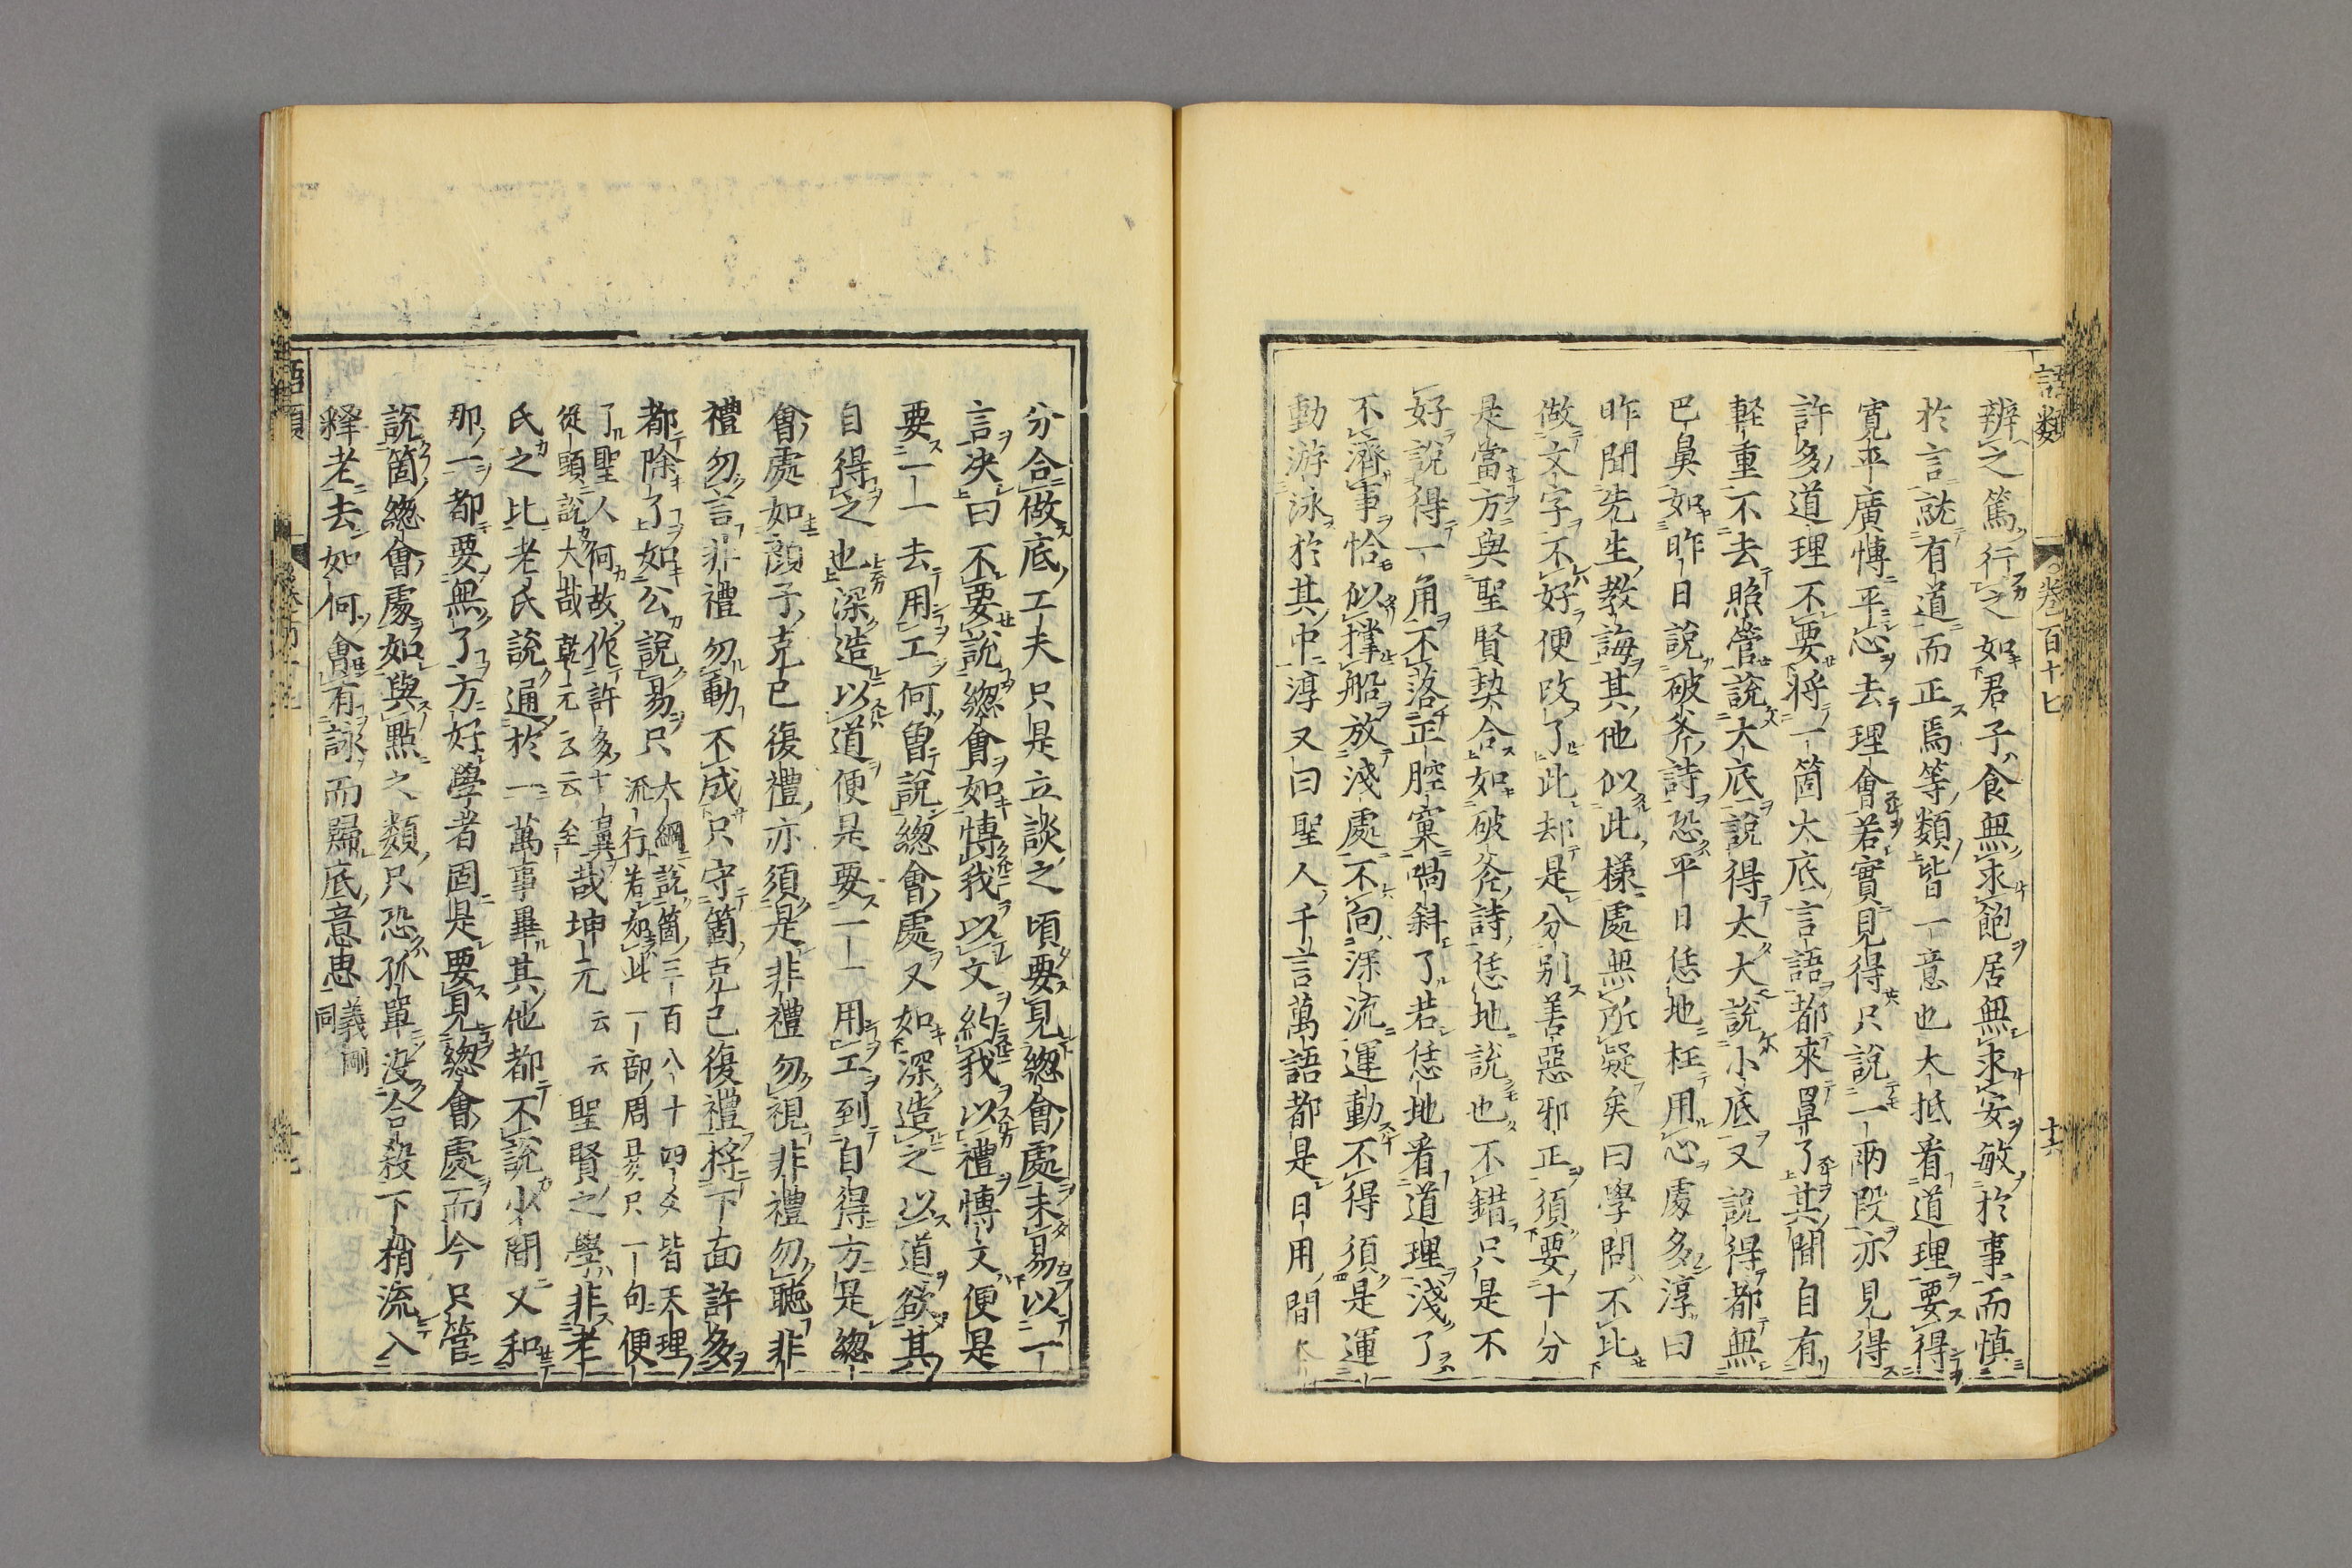 語類 卷百十七 十六
辨之篤行之如君子食無求飽居無求安敏於事而慎
於言就有道而正焉等類皆一意也大抵看道理要得
寬平廣愽平心去理會若實見得只說一兩段亦見得
許多道理不要將一箇大底言語都來罩了其間自有
軽重不去照管說大底說得太大說小底又說得都無
巴鼻如昨日說破斧詩恐平日恁地枉用心處多淳曰
昨聞先生教誨其他似此樣處無所疑矣曰學問不比
做文字不好便改了此却是分別善惡邪正須要十分
是當方與聖賢契合如破斧詩恁地說也不錯只是不
好說得一角不落正腔窠喎斜了若恁地看道理淺了
不濟事恰似撑船放淺處不向深流運動不得須是運
動游泳於其中淳又曰聖人千言萬語都是日用間
分合做底工夫只是立談之頃要見緫會處未易以一
言决曰不要說緫會如愽我以文約我以禮愽文便是
要一一去用工何曾說緫會處又如深造之以道欲其
自得之也深造以道便是要一一用工到自得方是緫
會處如顔子克已復禮亦須是非禮勿視非禮勿聽非
禮勿言非禮勿動不成只守箇克己復禮將下面許多
都除了如公說易只大綱說箇三百八十四爻皆天理
流行若如此一部周易只一句便
了聖人何故作許多十翼
從頭說大哉乾元云云至哉坤元云云聖賢之學非老
氏之比老氏說通於一萬事畢其他都不說少間又和
那一都要無了方好學者固是要見緫會處而今只管
說箇緫會處如與點之類只恐孤單没合殺下稍流入
釋老去如何會有詠而歸底意思義剛同
語類